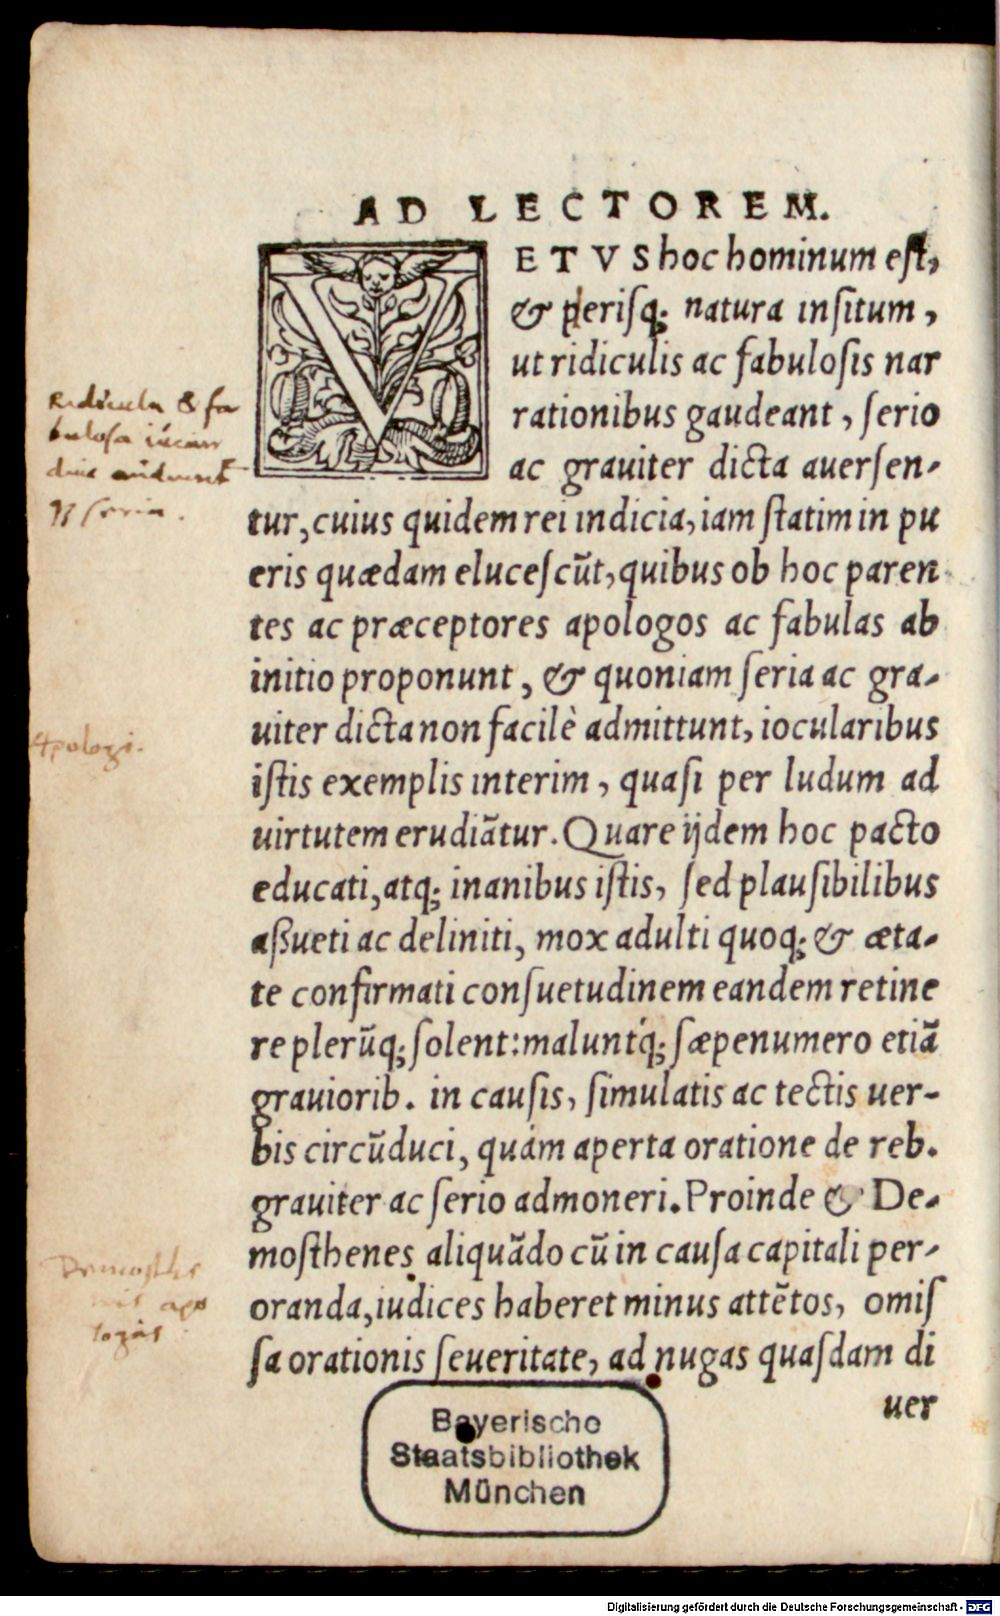 AD LECTOREM.
VETVS hoc hominum est,
& plerisq; natura insitum,
ut ridiculis ac fabulosis nar
rationibus gaudeant, serio
ac grauiter dicta auersen-
tur, cuius quidem rei indicia, iam statim in pu
eris quædam elucescūt, quibus ob hoc paren
tes ac præceptores apologos ac fabulas ab
initio proponunt, & quoniam seria ac gra-
uiter dicta non facilè admittunt, iocularibus
istis exemplis interim, quasi per ludum ad
uirtutem erudiātur. Quare ijdem hoc pacto
educati, atq; inanibus istis, sed plausibilibus
aßueti ac deliniti, mox adulti quoq; & æta-
te confirmati consuetudinem eandem retine
re plerūq; solent: malunt'q; sæpenumero etiā
grauiorib. in causis, simulatis ac tectis uer-
bis circūduci, quàm aperta oratione de reb.
grauiter ac serio admoneri. Proinde & De-
mosthenes aliquādo cū in causa capitali per-
oranda, iudices haberet minus attētos, omis
sa orationis seueritate, ad nugas quasdam di
uer
Ridicula & fa
bulosa iucun
seria.
Apologi.
Demosthe
nis apo
logus
Bayerische
Staatsbibliothek
München
Digitalisierung gefördert durch die Deutsche Forschungsgemeinschaft - DFG